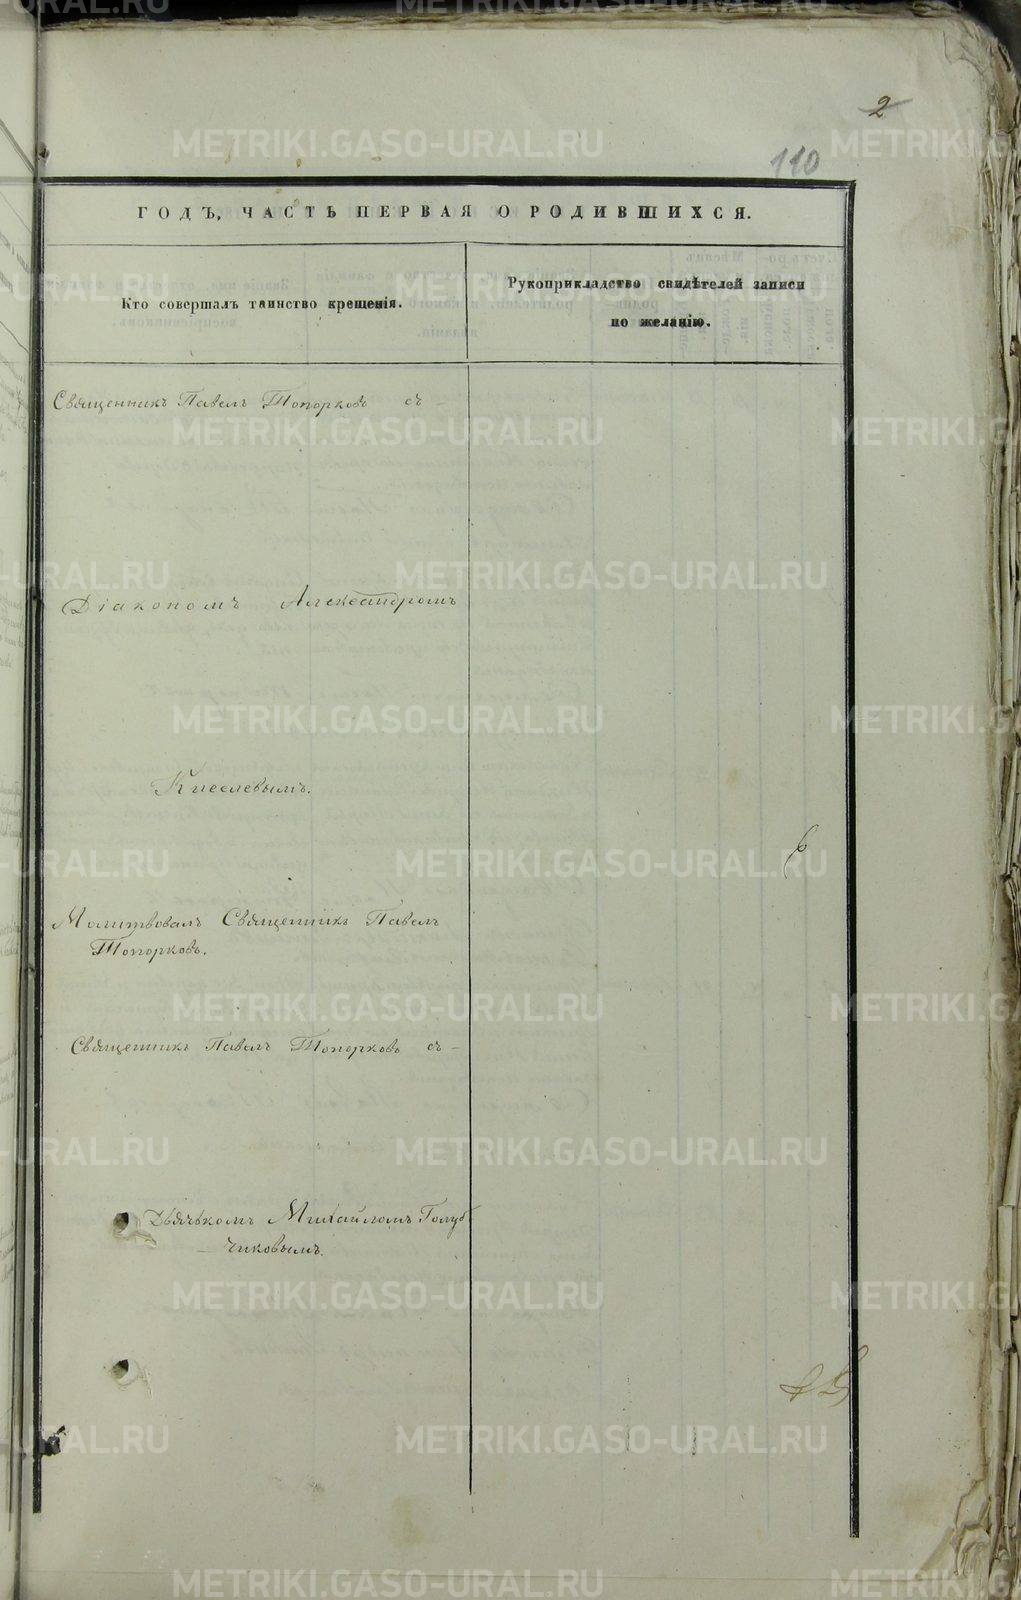 2
110
ГОДЪ, ЧАСТЬ ПЕРВАЯ О РОДИВШИХСЯ.
Кто совершалъ таинство крещенія.
Рукоприкладство свидѣтелей записи
по желанію.
Священникъ Павелъ Топорковъ съ —
Діакономъ Александромъ
Киселевымъ.
Молитвовалъ Священникъ Павелъ
Топорковъ.
Священникъ Павелъ Топорковъ съ —
Дьячькомъ Михайломъ Голуб
чиковымъ.
METRIKI.GASO-URAL.RU